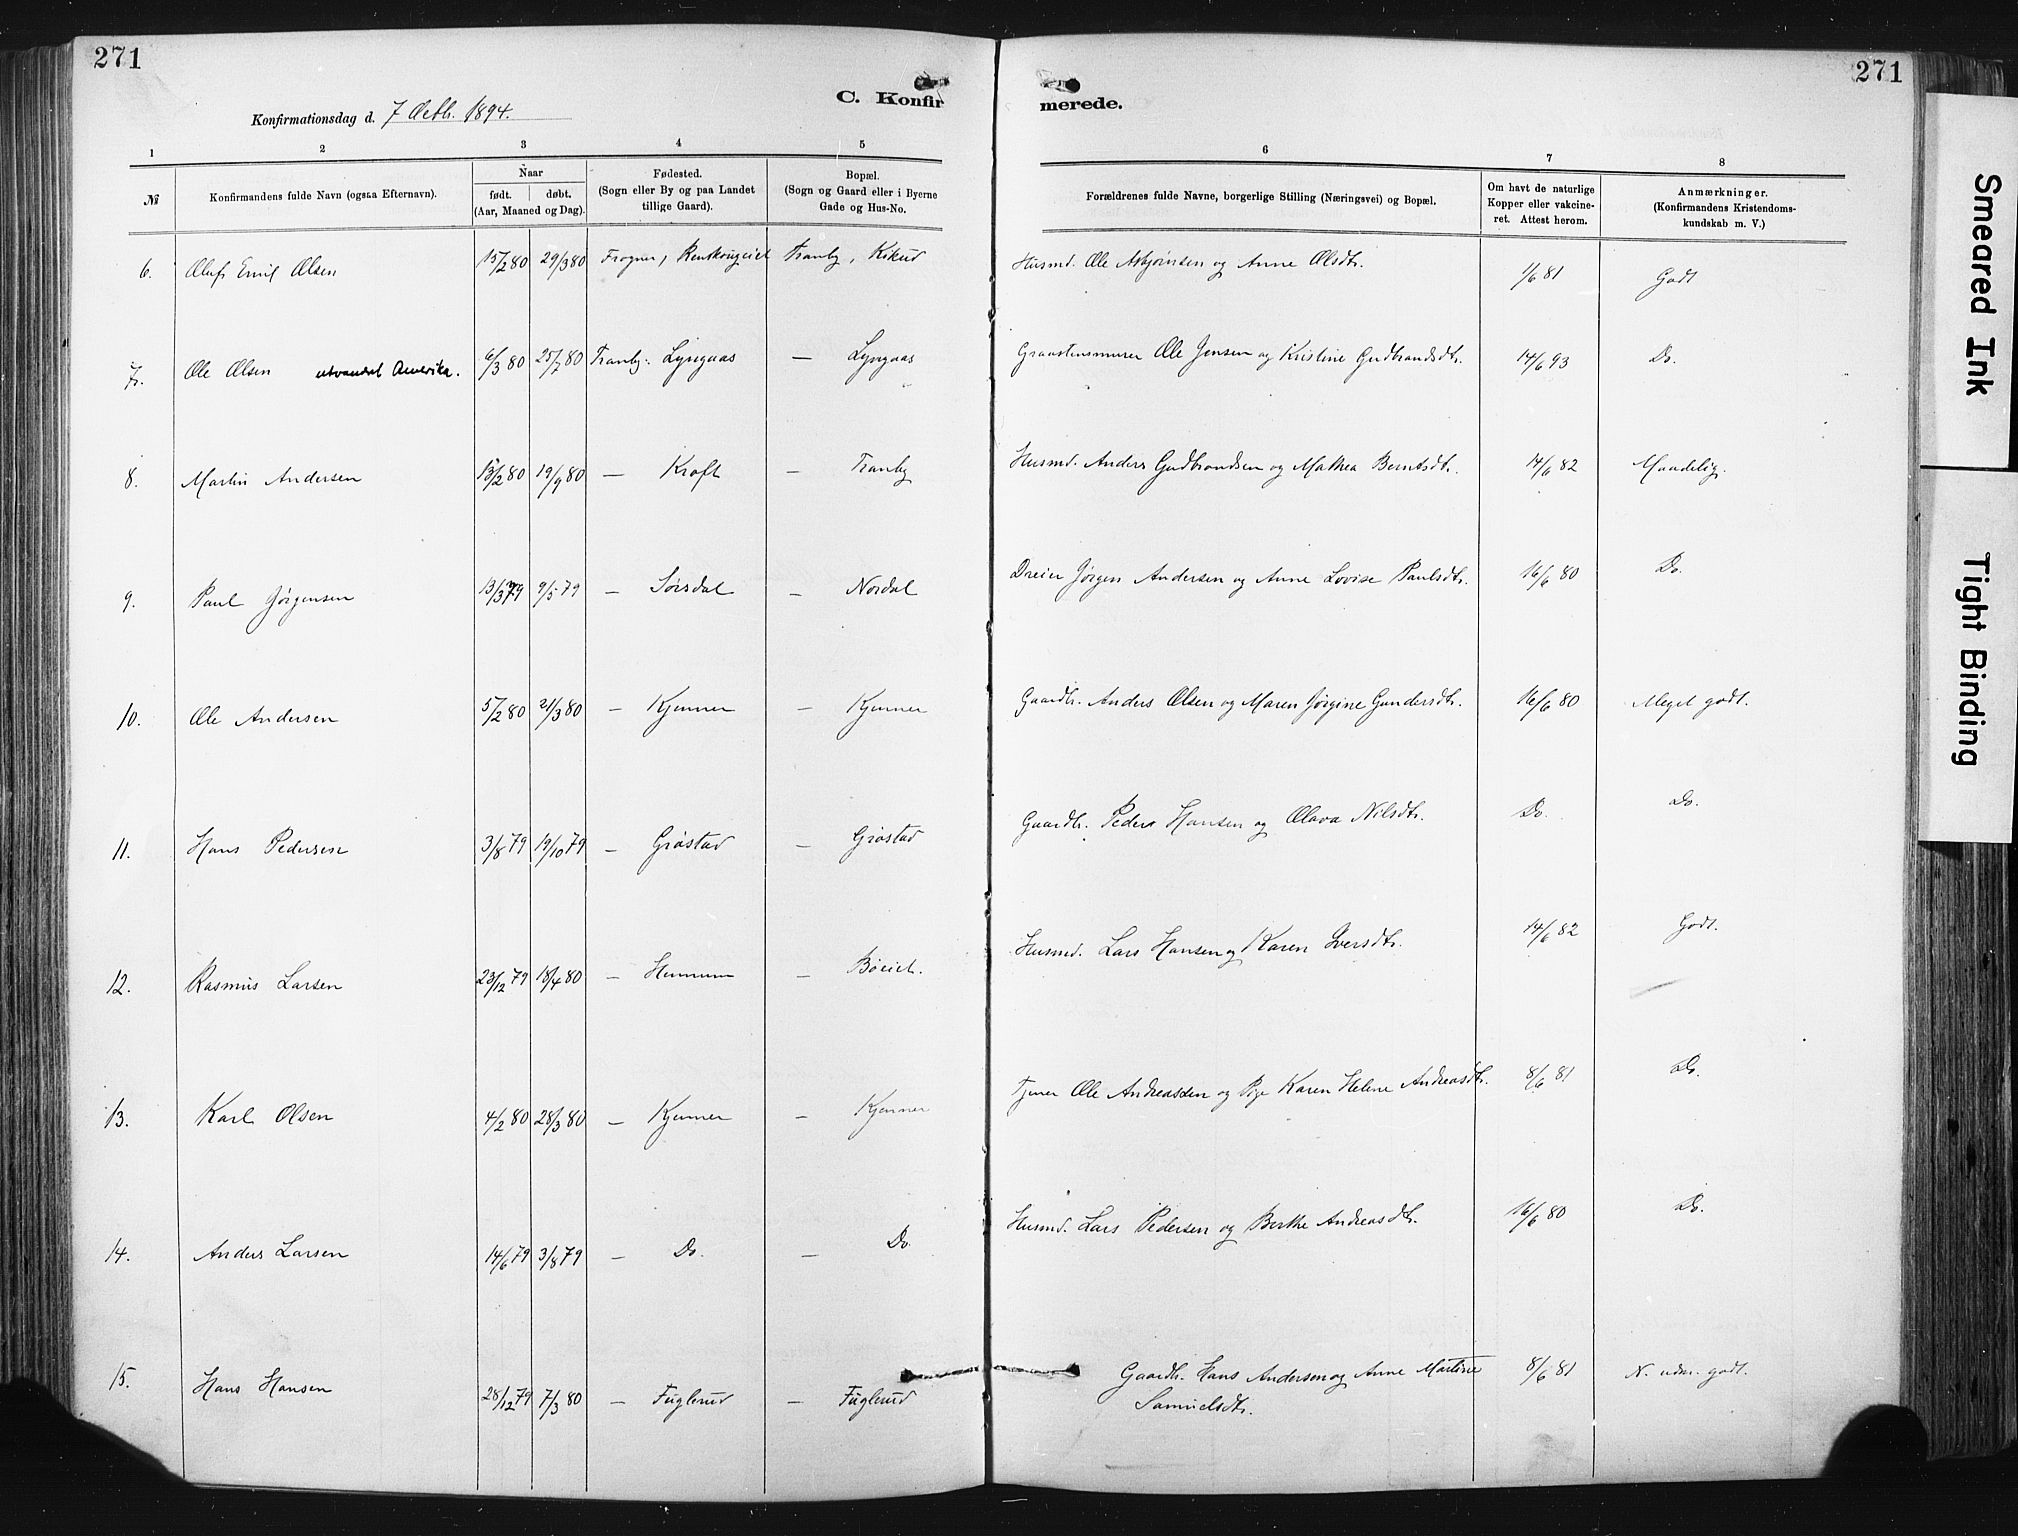 271
271
C. Konfirmerede.
Konfirmationsdag d. 7 Octb. 1894.
1 2 3 4 5 6 7 8
№ Konfirmandens fulde Navn (ogsaa Efternavn). Naar født. døbt. (Aar, Maaned og Dag). Fødested. (Sogn eller By og paa Landet tillige Gaard). Bopæl. (Sogn og Gaard eller i Byerne Gade og Hus-No. Forældrenes fulde Navne, borgerlige Stilling (Næringsvei) og Bopæl. Om havt de naturlige Kopper eller vakcineret. Attest herom. Anmærkninger. (Konfirmandens Kristendomskundskab m. V.)
6. Oluf Emil Olsen 15/2 80 29/3 80 Frogner, Tranby, Kikud Husmd. Ole Asbjørnsen og Anne Olsdtr. 1/6 81 Godt
7. Ole Olsen utvandret Amerika. 6/3 80 25/7 80 Tranby. Lyngaas — Lyngaas Graastensmurer Ole Jensen og Kristine Gudbrandsdtr. 14/6 93 Do.
8. Martin Andersen 13/2 80 19/9 80 — Kroft — Tranby Husmd. Anders Gudbrandsen og Mathea Berntsdtr. 14/6 82 Maadelig.
9. Paul Jørgensen 13/3 79 9/5 79 — Sørsdal — Nordal Dreier Jørgen Andersen og Anne Lovise Paulsdtr. 16/6 80 Do.
10. Ole Andersen 5/2 80 21/3 80 — Kjenner — Kjenner Gaardbr. Anders Olsen og Maren Jørgine Gundersdtr. 16/6 80 Meget godt.
11. Hans Pedersen 3/8 79 19/10 79 — Grøstad — Grøstad Gaardbr. Peder Hansen og Olava Nilsdtr. Do. Do.
12. Rasmus Larsen 23/12 79 18/4 80 — Hennum — Bøeiet. Husmd. Lars Hansen og Karen Iversdtr. 14/6 82 Godt.
13. Karl Olsen 4/2 80 28/3 80 — Kjenner — Kjenner Tjener Ole Andreassen og Pige Karen Helene Andreasdtr. 8/6 81 Do.
14. Anders Larsen 14/6 79 3/8 79 — Do. — Do Husmd. Lars Pedersen og Berthe Andreasdtr. 16/6 80 Do.
15. Hans Hansen 28/12 79 7/3 80 — Fuglerud — Fuglerud Gaardbr. Hans Andersen og Anne Martine 8/6 81 N. udm. godt.
Samuelsdtr.
Smeared Ink
Tight Binding